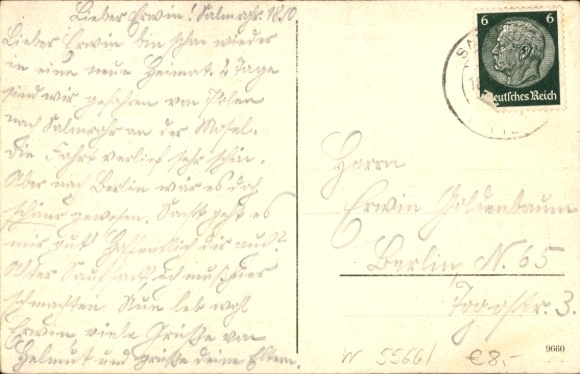 Lieber Erwin! Salmrohr. 18.10
Lieber Erwin bin schon wieder
in eine neue Heimat. 2 Tage
sind wir gefahren von Polen
nach Salmrohr an der Mosel.
Die Fahrt verlief sehr schön.
Aber nach Berlin wär es doch
schöner gewesen. Sonst geht es
mir gut Hoffentlich dir auch?
Alter ich muss hier
schmachten Nun leb wohl
Erwin viele Grüße von
Helmut und grüße deine Eltern.
6 6
Deutsches Reich
Herrn
Erwin Goldenbaum
Berlin, N. 65
Togostr. 3.
9660
N 55661 €8,-